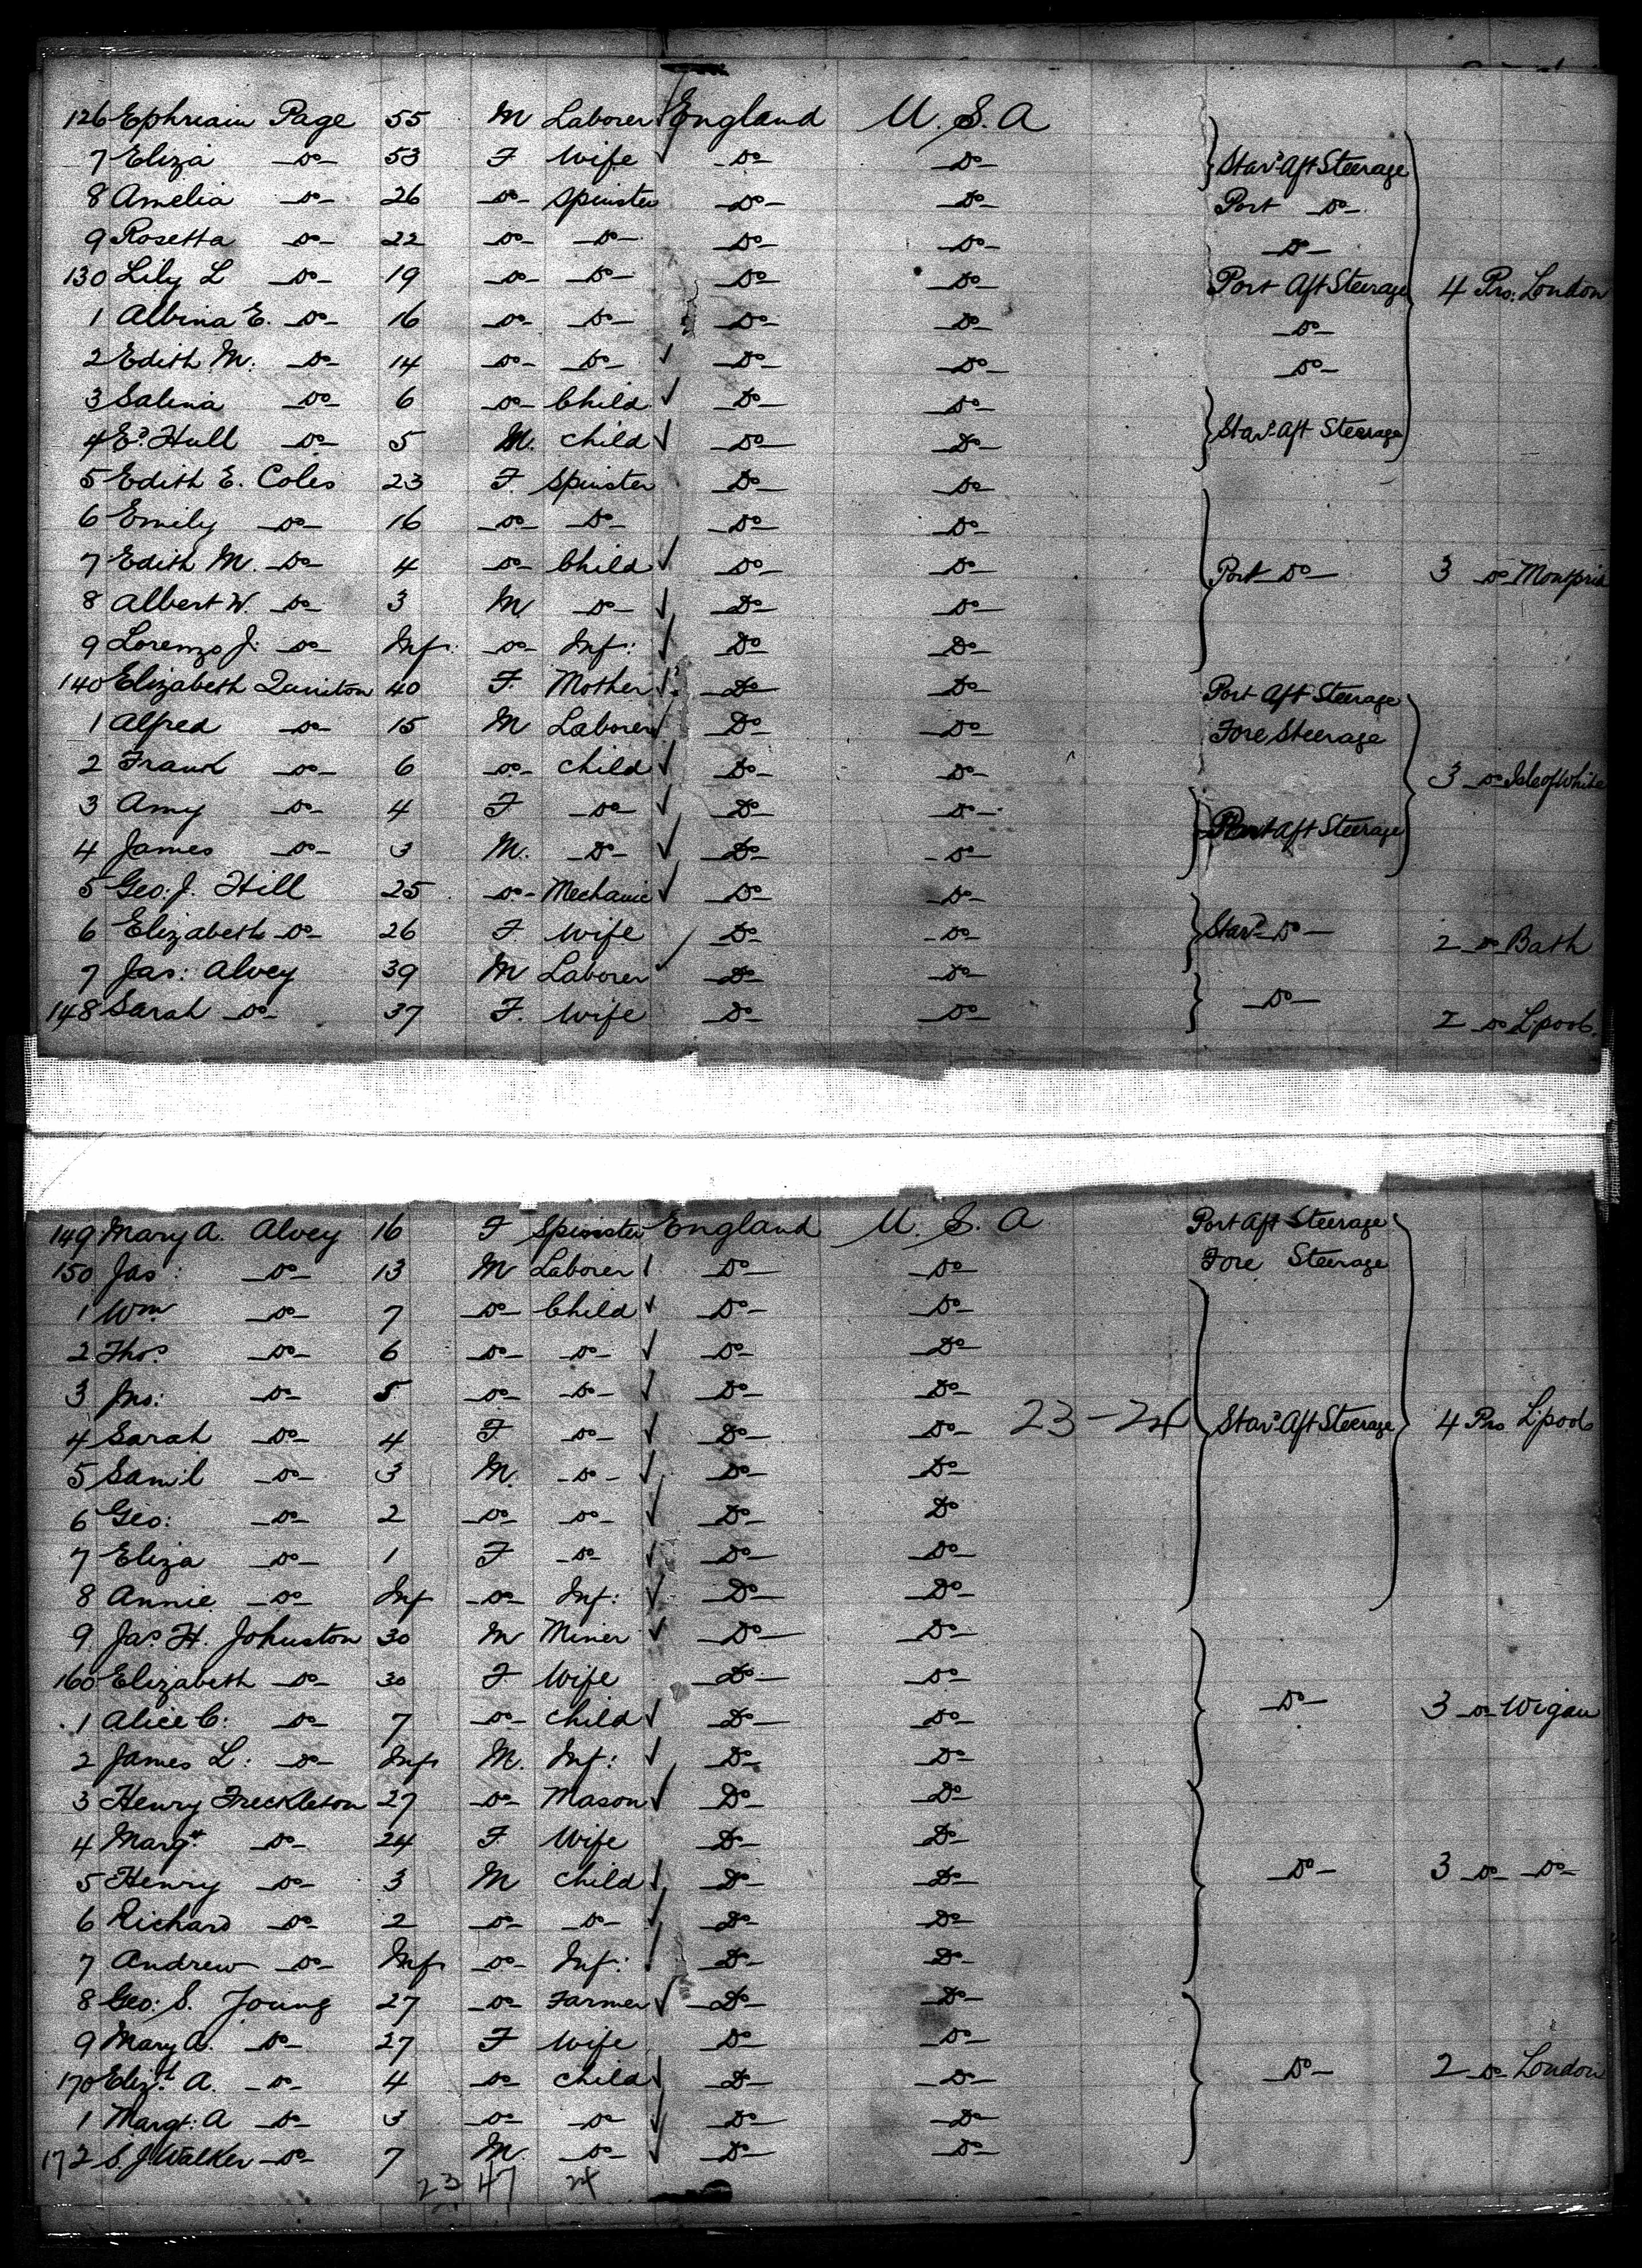 126 Ephriain Page 55 M Laborer England U. S. A
7 Eliza -Do- 53 F Wife -Do- -Do- Stard Aft Steerage
8 Amelia -Do- 26 -Do- Spinster -Do- -Do- Port -Do-
9 Rosetta -Do- 22 -Do- -Do- -Do- -Do- -Do-
130 Lily L -Do- 19 -Do- -Do- -Do- -Do- Port Aft Steerage 4 Pro. London
1 Albina E. -Do- 16 -Do- -Do- -Do- -Do- -Do-
2 Edith M. -Do- 14 -Do- -Do- -Do- -Do- -Do-
3 Salina -Do- 6 -Do- Child -Do- -Do-
4 Ed. Hull -Do- 5 M. Child -Do- -Do- Stard Aft Steerage
5 Edith E. Coles 23 F. Spinster -Do- -Do-
6 Emily -Do- 16 -Do- -Do- -Do- -Do-
7 Edith M. -Do- 4 -Do- Child -Do- -Do- Port -Do- 3 -Do-
8 Albert W. -Do- 3 M -Do- -Do- -Do-
9 Lorenzo J. -Do- Inf. -Do- Inf: -Do- -Do-
140 Elizabeth Quinton 40 F. Mother -Do- -Do- Port Aft Steerage
1 Alfred -Do- 15 M Laborer -Do- -Do- Fore Steerage
2 Frank -Do- 6 -Do- Child -Do- -Do- 3 -Do- Isle of White
3 Amy -Do- 4 F -Do- -Do- -Do-
4 James -Do- 3 M. -Do- -Do- -Do- Port Aft Steerage
5 Geo: J. Hill 25 -Do- Mechanic -Do- -Do-
6 Elizabeth -Do- 26 F. Wife -Do- -Do- Stard -Do- 2 -Do- Bath
7 Jas: Alvey 39 M Laborer -Do- -Do-
148 Sarah -Do- 37 F. Wife -Do- -Do- -Do- 2 -Do- L'pool.
149 Mary A. Alvey 16 F Spinster England U. S. A Port Aft Steerage
150 Jas: -Do- 13 M Laborer -Do- -Do- Fore Steerage
1 Wm -Do- 7 -Do- Child -Do- -Do-
2 Thos. -Do- 6 -Do- -Do- -Do- -Do-
3 Jno: -Do- 5 -Do- -Do- -Do- -Do-
4 Sarah -Do- 4 F -Do- -Do- -Do- 23-24 Stard Aft Steerage 4 Pro L'pool
5 Saml -Do- 3 M. -Do- -Do- -Do-
6 Geo: -Do- 2 -Do- -Do- -Do- Do
7 Eliza -Do- 1 F -Do- -Do- -Do-
8 Annie -Do- Inf -Do- Inf: -Do- -Do-
9 Jas H. Johnston 30 M Miner -Do- -Do-
160 Elizabeth -Do- 30 F Wife -Do- -Do-
1 Alice C: -Do- 7 -Do- Child -Do- -Do- -Do- 3 -Do- Wigan
2 James L: -Do- Inf. M. Inf: -Do- -Do-
3 Henry Freckleton 27 -Do- Mason -Do- -Do-
4 Margt. -Do- 24 F Wife -Do- -Do-
5 Henry -Do- 3 M Child -Do- -Do- -Do- 3 -Do- -Do-
6 Richard -Do- 2 -Do- -Do- -Do- -Do-
7 Andrew -Do- Inf. -Do- Inf: -Do- -Do-
8 Geo: S. Young 27 -Do- Farmer -Do- -Do-
9 Mary A. -Do- 27 F Wife -Do- -Do-
170 Elizth A. -Do- 4 -Do- Child -Do- -Do- -Do- 2 -Do- London
1 Margt: A -Do- 3 -Do- -Do- -Do- -Do-
172 S. J Walker -Do- 7 M. -Do- -Do- -Do-
23 47 24